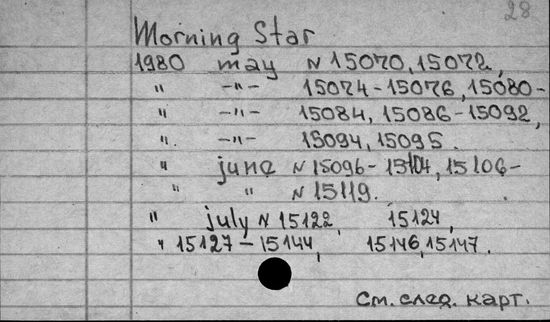 28
Morning Star
1980 may N 15070, 15072,
" -"- 15074-15076, 15080-
" -"- 15084, 15086-15092,
" -"- 15094, 15095.
" june N 15096-15104, 15106-
" " N 15119.
" july N 15122, 15124,
" 15127-15144, 15146, 15147.
См. след. карт.